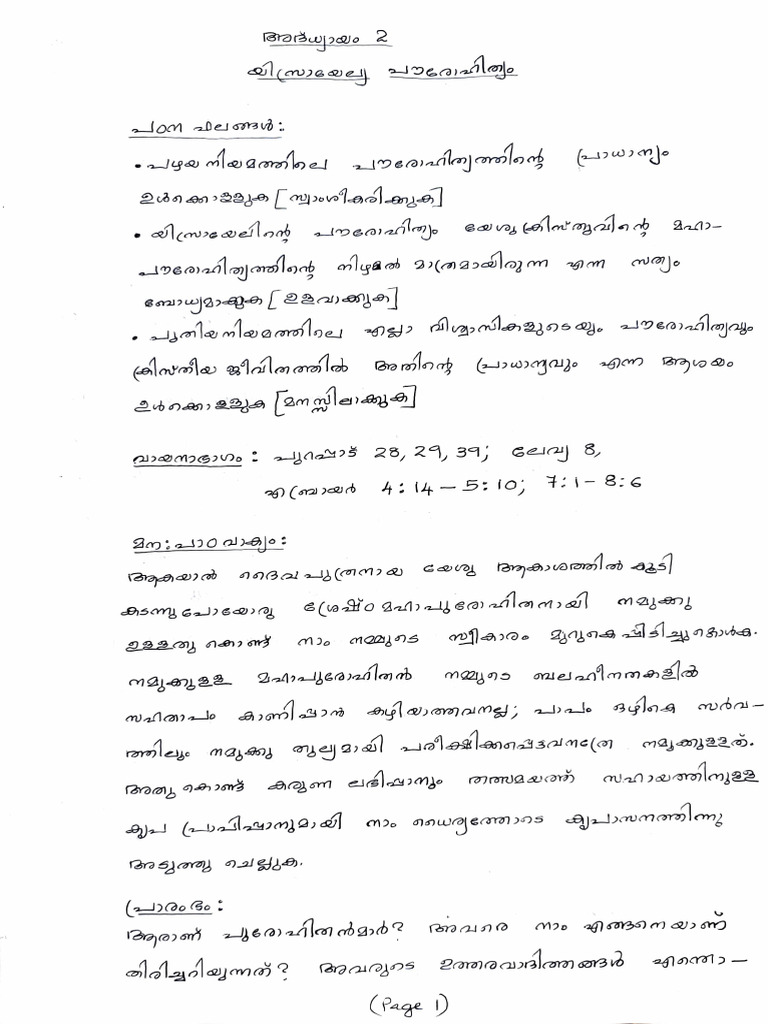 അദ്ധ്യായം 2
യിസ്രായേല്യ പൗരോഹിത്യം
പഠന ഫലങ്ങൾ:
• പഴയനിയമത്തിലെ പൗരോഹിത്യത്തിന്റെ പ്രാധാന്യം
ഉൾക്കൊള്ളുക [സ്വാംശീകരിക്കുക]
• യിസ്രായേലിന്റെ പൗരോഹിത്യം യേശുക്രിസ്തുവിന്റെ മഹാ-
പൗരോഹിത്യത്തിന്റെ നിഴൽ മാത്രമായിരുന്ന എന്ന സത്യം
ബോധ്യമാക്കുക [ഉളവാക്കുക]
• പുതിയനിയമത്തിലെ എല്ലാ വിശ്വാസികളുടെയും പൗരോഹിത്യവും
ക്രിസ്തീയ ജീവിതത്തിൽ അതിന്റെ പ്രാധാന്യവും എന്ന ആശയം
ഉൾക്കൊള്ളുക [മനസ്സിലാക്കുക]
വായനാഭാഗം: പുറപ്പാട് 28, 29, 39; ലേവ്യ 8,
എബ്രായർ 4:14 – 5:10; 7:1 – 8:6
മന:പാഠ വാക്യം:
ആകയാൽ ദൈവപുത്രനായ യേശു ആകാശത്തിൽ കൂടി
കടന്നുപോയോരു ശ്രേഷ്ഠമഹാപുരോഹിതനായി നമുക്കു
ഉള്ളതുകൊണ്ട് നാം നമ്മുടെ സ്വീകാരം മുറുകെപ്പിടിച്ചുകൊൾക.
നമുക്കുള്ള മഹാപുരോഹിതൻ നമ്മുടെ ബലഹീനതകളിൽ
സഹതാപം കാണിപ്പാൻ കഴിയാത്തവനല്ല; പാപം ഒഴികെ സർവ-
ത്തിലും നമുക്കു തുല്യമായി പരീക്ഷിക്കപ്പെട്ടവനത്രേ നമുക്കുള്ളത്.
അതുകൊണ്ട് കരുണ ലഭിപ്പാനും തത്സമയത്ത് സഹായത്തിനുള്ള
കൃപ പ്രാപിപ്പാനുമായി നാം ധൈര്യത്തോടെ കൃപാസനത്തിന്നു
അടുത്തു ചെല്ലുക.
പ്രാരംഭം:
ആരാണ് പുരോഹിതൻമാർ? അവരെ നാം എങ്ങനെയാണ്
തിരിച്ചറിയുന്നത്? അവരുടെ ഉത്തരവാദിത്തങ്ങൾ എന്തൊ-
(Page 1)